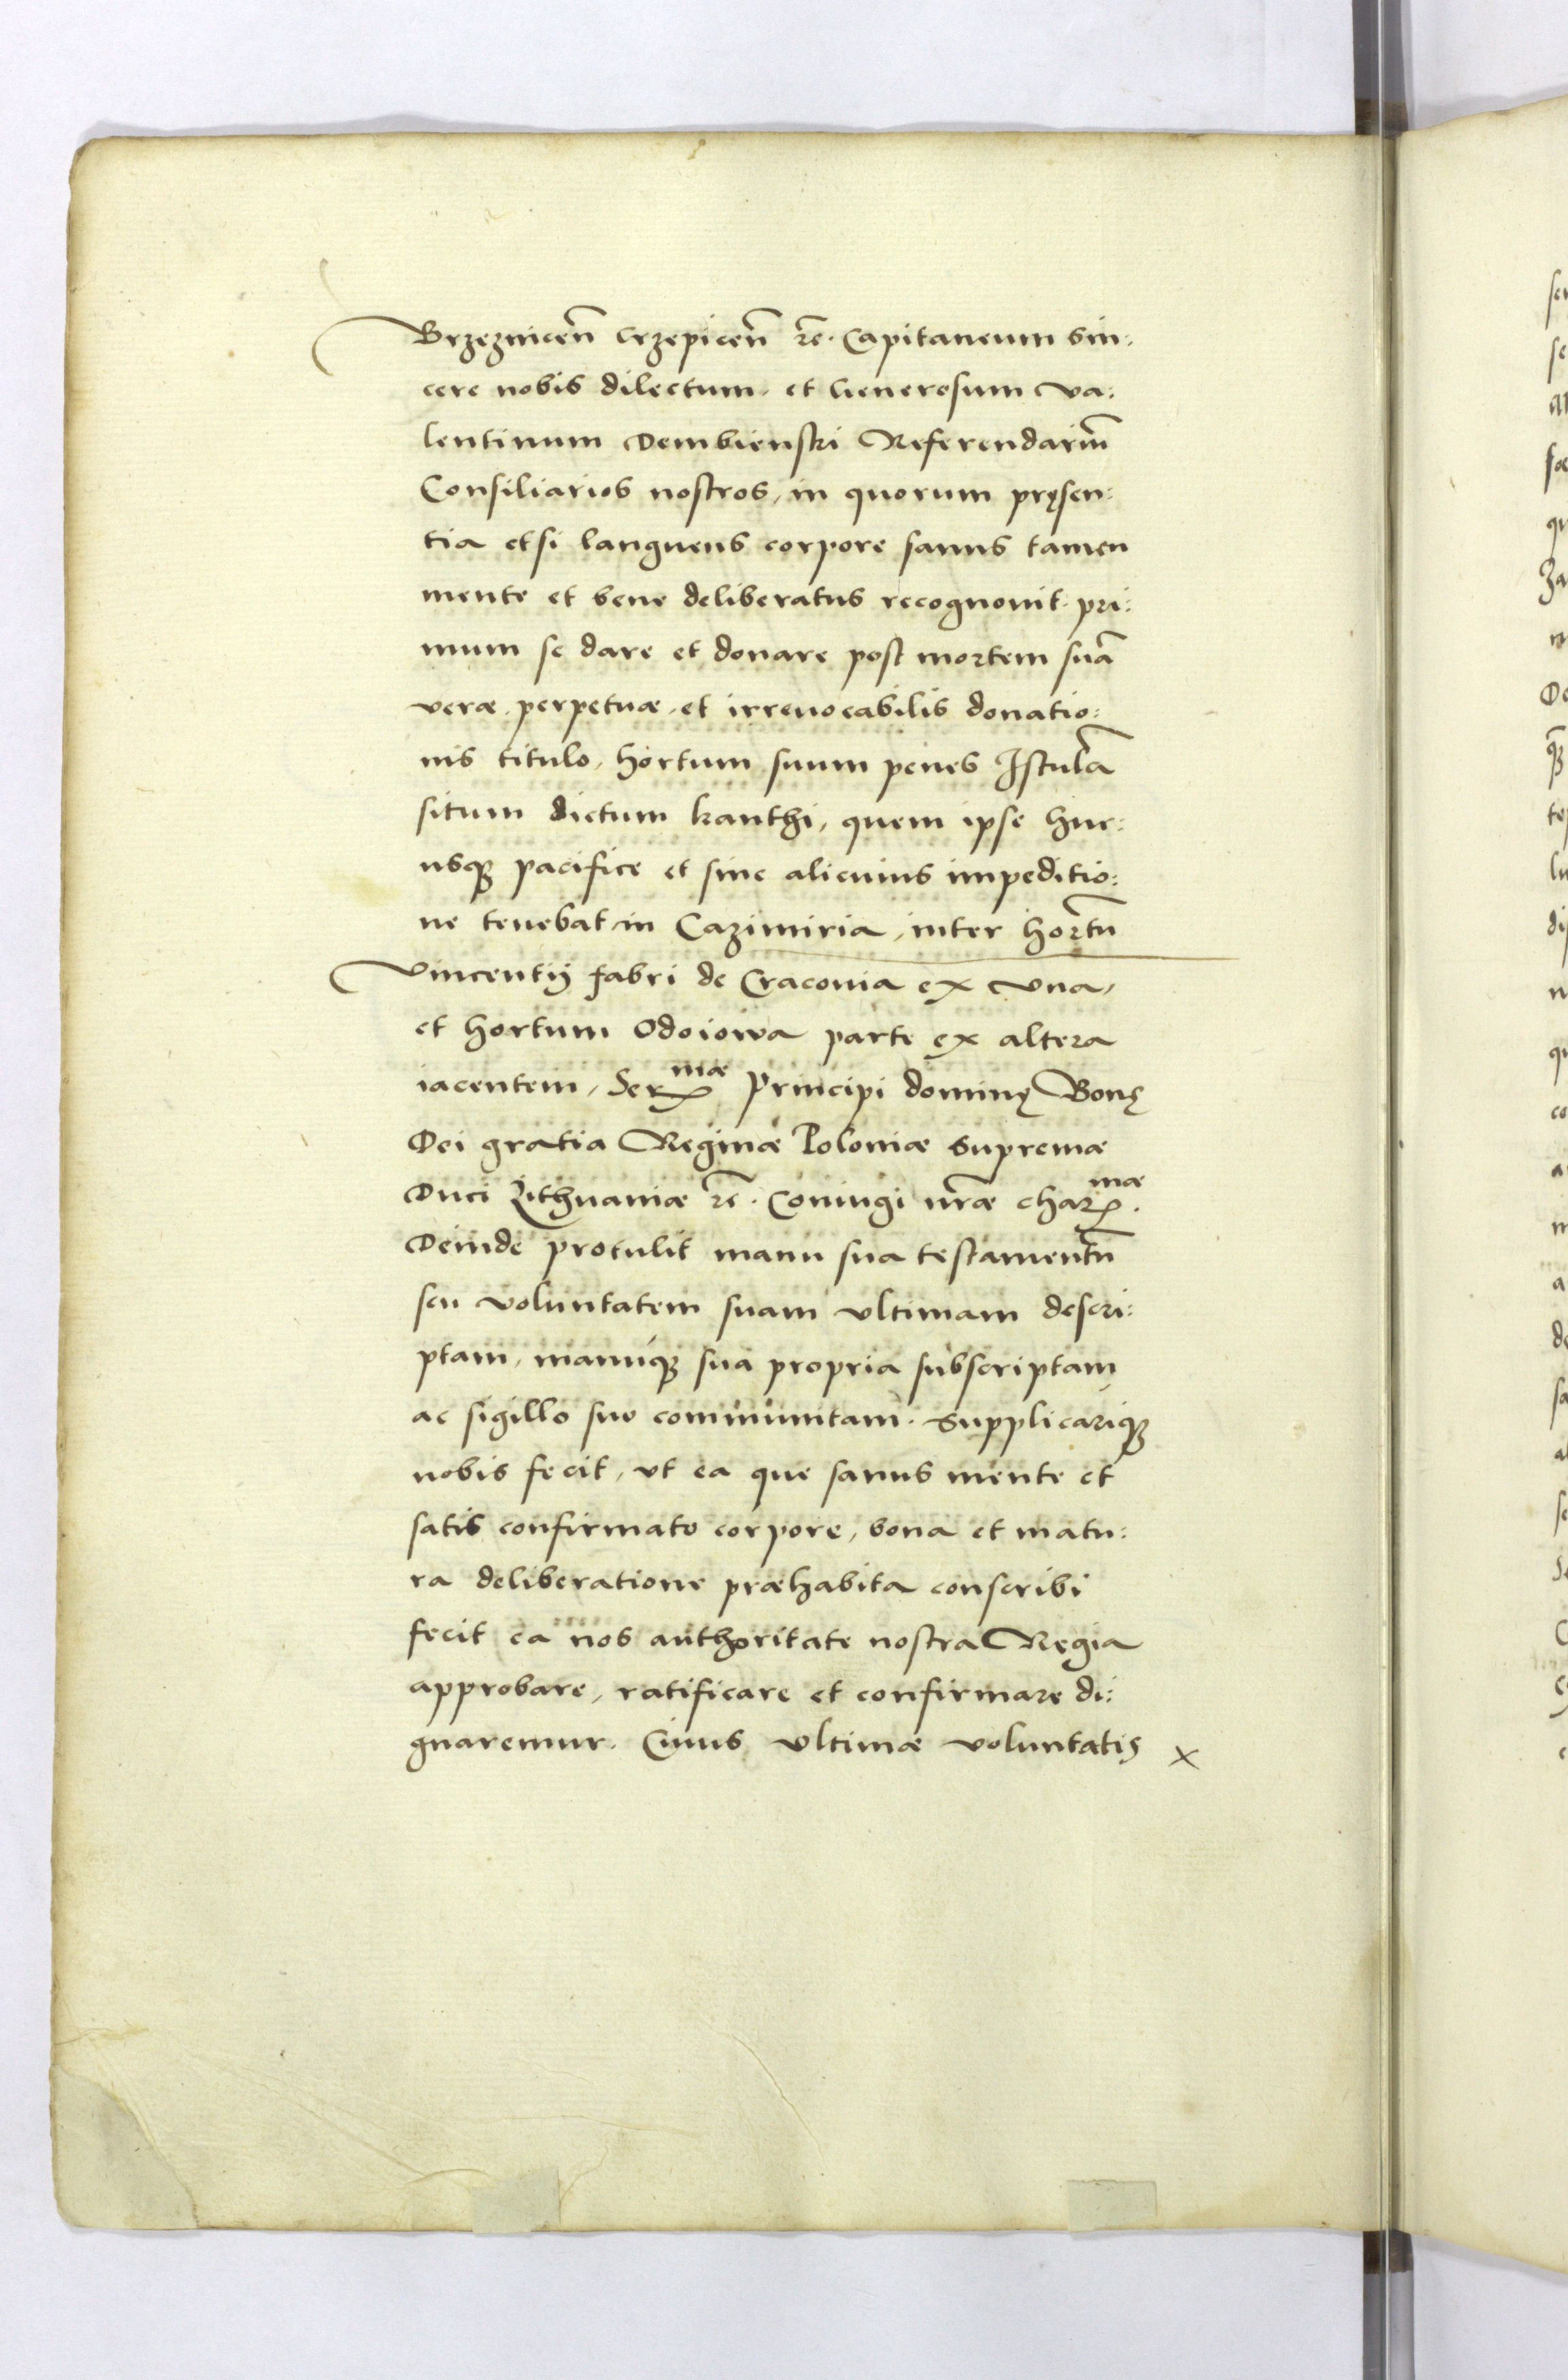 Brzeznicen̄ crzepicen̄ rē. Capitaneum sin:
cere nobis dilectum, et Generosum va:
lentinum Dembienski Referendariū
Consiliarios nostros, in quorum pręsen:
tia etsi languens corpore sanus tamen
mente et bene deliberatus recognouit. pri:
mum se dare et donare post mortem suā
veræ, perpetuæ, et irreuocabilis donatio:
nis titulo, hortum suum penes Istulā
situm dictum kanthi, quem ipse huc:
usq₃ pacifice et sine alicuius impeditio:
ne tenebat in Cazimiria, inter hortū
Vincentij fabri de Craconia ex vna,
et hortum Odoiowa parte ex altera
iacentem, Serᵐᵃᵉ Principi dominę Bonę
Dei gratia Reginæ Poloniæ supremæ
Duci Lithuaniæ rē. Coniugi nr̄æ charᵐᵃᵉ.
Deinde protulit manu sua testamentū
seu voluntatem suam vltimam descri:
ptam, manuq₃ sua propria subscriptam
ac sigillo suo communitam. Supplicariq₃
nobis fecit, vt ea que sanus mente et
satis confirmato corpore, bona et matu:
ra deliberatione præhabita conscribi
fecit ea nos authoritate nostra Regia
approbare, ratificare et confirmare di:
gnaremur. Cuius vltimæ voluntatis x